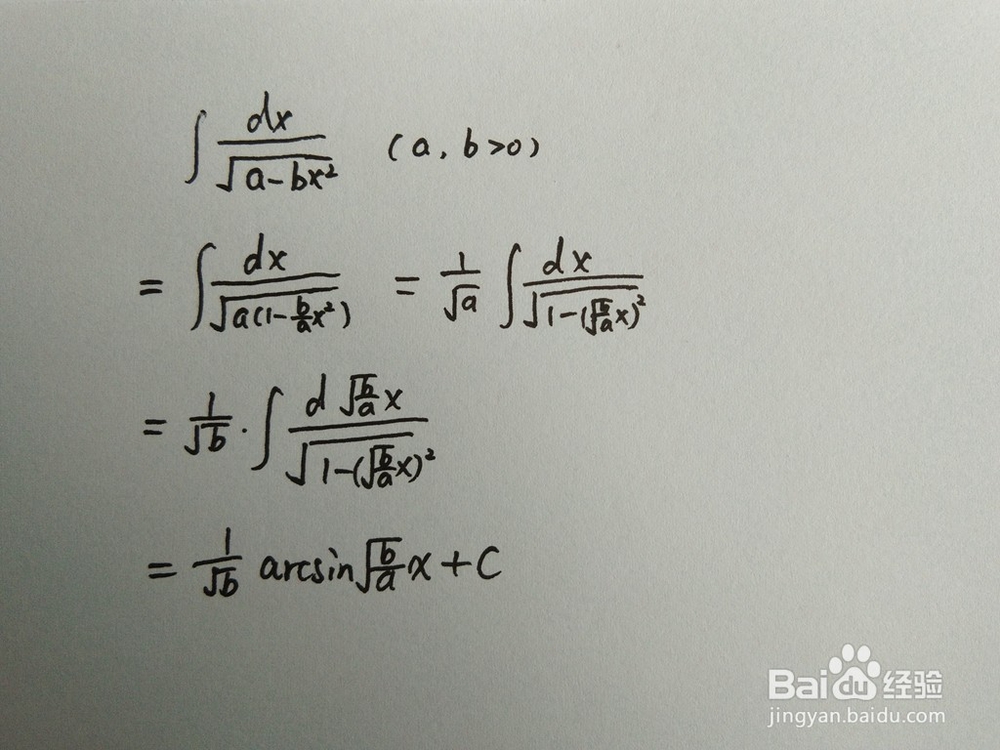 ∫ dx/√(a-bx²) (a, b>0)
= ∫ dx/√(a(1-(b/a)x²)) = 1/√a ∫ dx/√(1-(√(b/a)x)²)
= 1/√b · ∫ d√(b/a)x/√(1-(√(b/a)x)²)
= 1/√b arcsin√(b/a)x+C
Baidu经验
jingyan.baidu.com